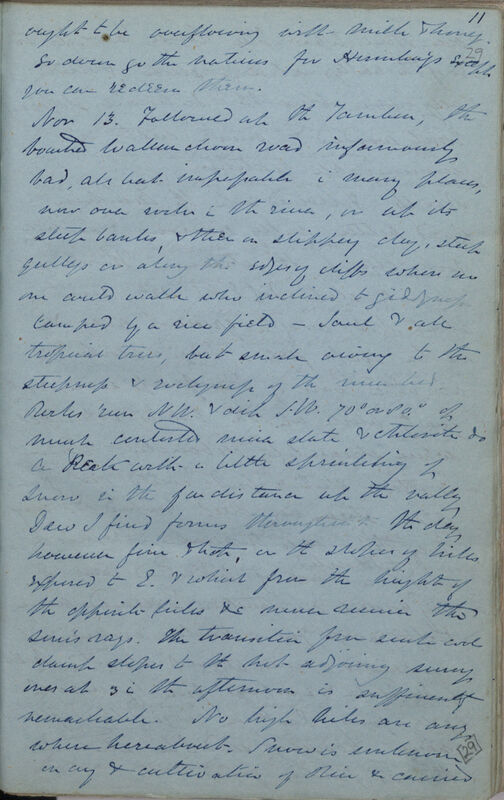 11
29
ought to be overflowing with milk & honey.
So down go the natives for Hemmings
you can redeem them.
Nov 13. Followed up the Tambur, the
boasted Wallanchoon road infamously
bad, all but impassable i many places,
now over rocks i the river, or up its
steep banks, & then on slippery clay, steep
gulleys or along the edges of cliffs where no
one could walk who inclined to giddyness
camped by a rice field — Saul & all
tropical trees, but small owing to the
steepness & rockyness of the river bed.
Rocks run N.W. & dip S.W. 70° or 80.° of
much contorted mica slate & chlorite do
a Peak with a little sprinkling of
snow in the far distance up the valley
Dew I find forms throughout the day
however fine & hot, on the slopes of hills
exposed to E. & which from the height of
the opposite hills &c never receive the
sun's rays. The transition from such cool
damp slopes to the hot adjoining sunny
ones at 3 i the afternoon is sufficiently
remarkable. No high hills are any
where hereabout. Snow is unknown
in any & cultivation of Rice & carried
[29]